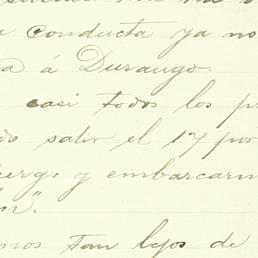 conducta ya no
á Durango.
casi todos los
salir el 17 por
y embarcarm
tan lejos de